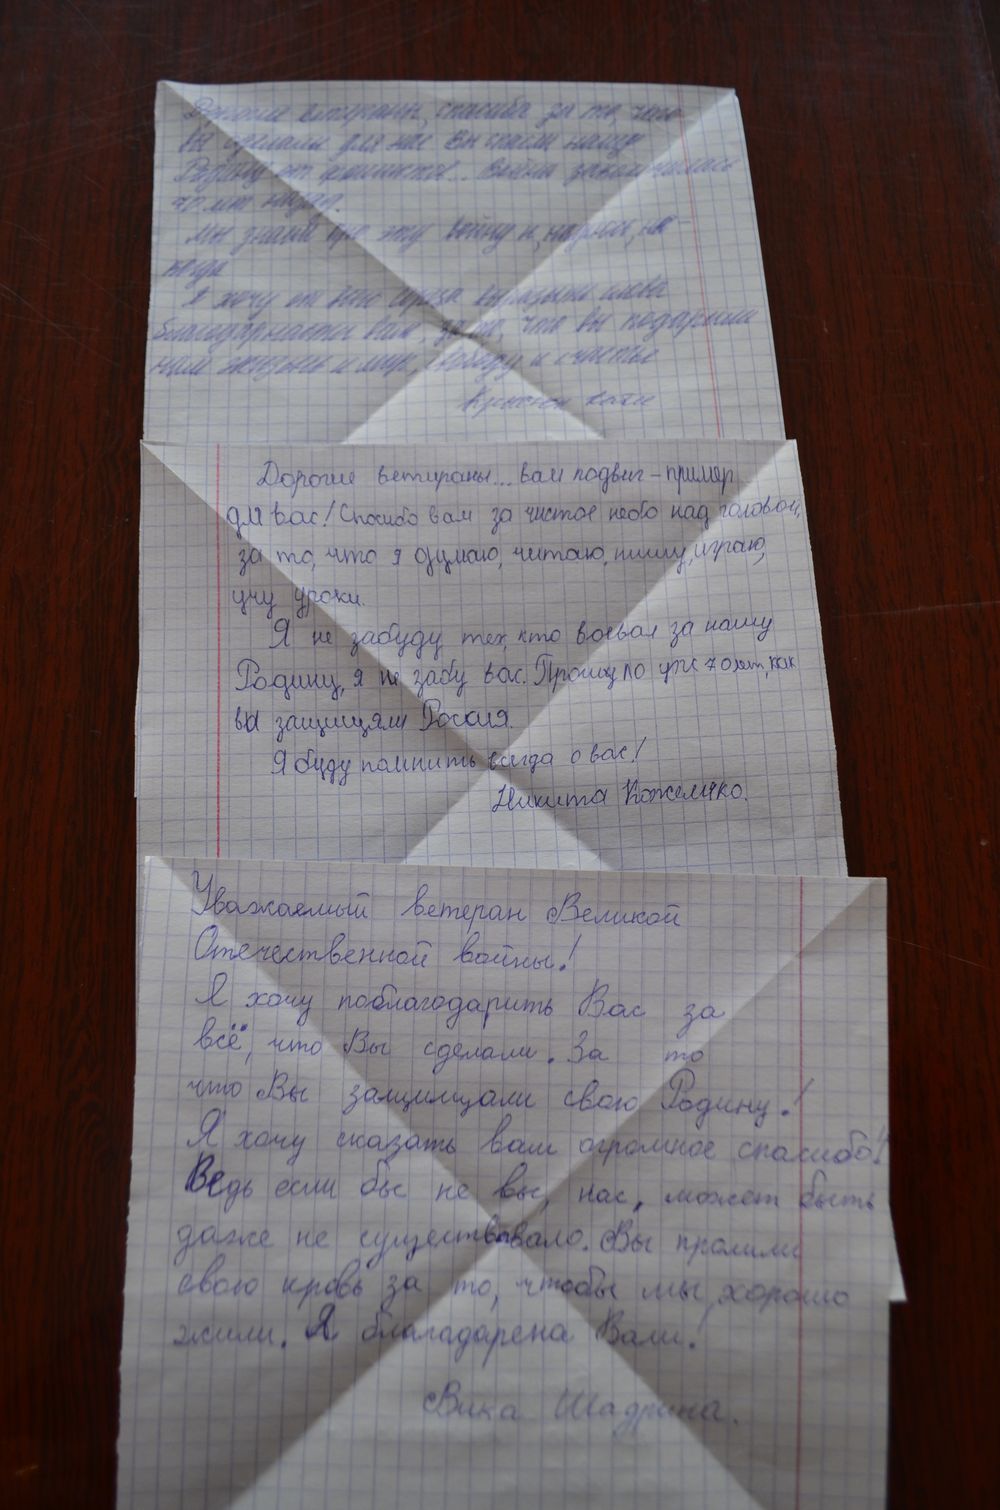 Дорогие ветераны, спасибо за то, что
вы сделали для нас Вы спасли нашу
Родину от фашистов. Война закончилась
70 лет назад.
Мы знаем про эту войну и,
Я хочу от всего сердца слова
благодарности вам, за то, что вы подарили
нам жизнь и мир, свободу и счастье
Катя
Дорогие ветираны... вам подвиг - пример
для вас! Спосибо вам за чистое небо над головой,
за то, что я думаю, читаю, пишу, играю,
учу уроки.
Я не забуду тех, кто воевал за нашу
Родину, я не забу вас. Прошло уже 70 лет, как
вы защищяли Россия.
Я буду помнить всегда о вас!
Никита Кожемяко.
Уважаемый ветеран Великой
Отечественной войны!
Я хочу поблагодарить Вас за
всё, что Вы сделали. За то
что Вы защищали свою Родину!
Я хочу сказать вам огромное спасибо!
Ведь если бы не вы, нас, может быть
даже не существовало. Вы пролили
свою кровь за то, чтобы мы хорошо
жили. Я благадарена Вам!
Вика Шадрина.